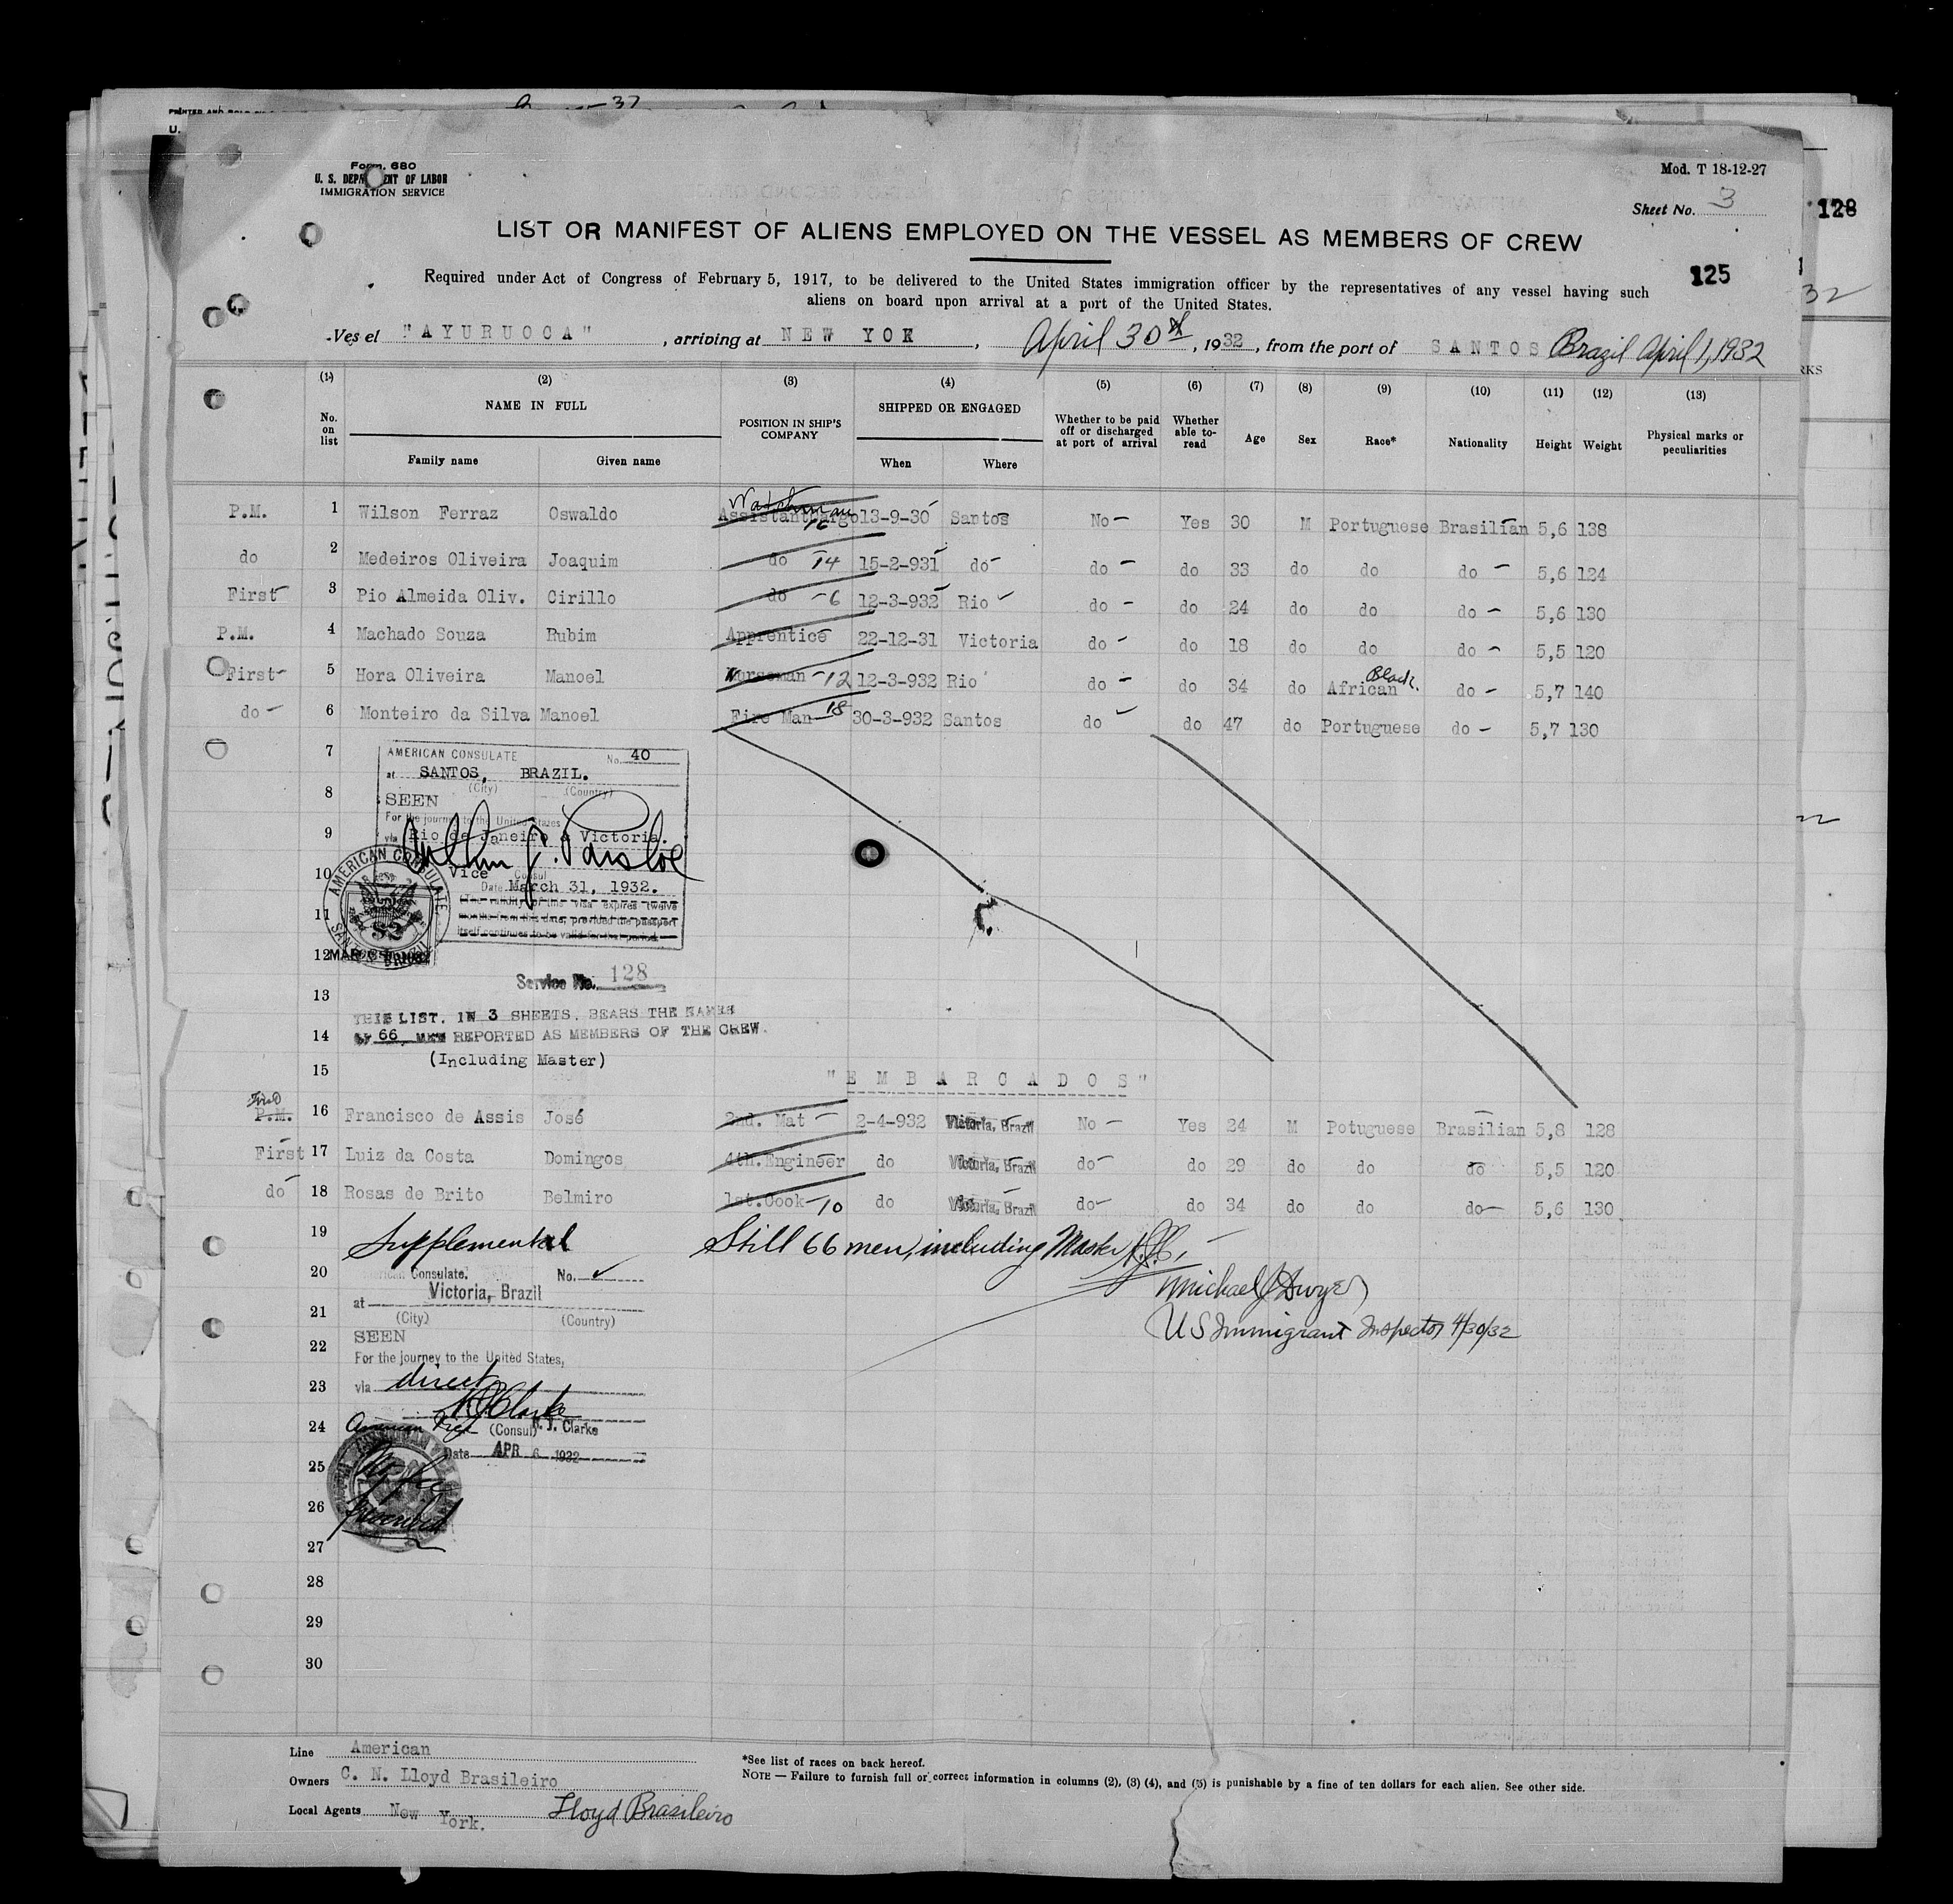 Form 680
U. S. DEPARTMENT OF LABOR
IMMIGRATION SERVICE
Mod. T 18-12-27
Sheet No. 3
128
LIST OR MANIFEST OF ALIENS EMPLOYED ON THE VESSEL AS MEMBERS OF CREW
125
Required under Act of Congress of February 5, 1917, to be delivered to the United States immigration officer by the representatives of any vessel having such
aliens on board upon arrival at a port of the United States.
Ves el "AYURUOCA", arriving at NEW YOK, April 30th, 1932, from the port of SANTOS Brazil April 1, 1932
(1) (2) (3) (4) (5) (6) (7) (8) (9) (10) (11) (12) (13)
No. on list NAME IN FULL Family name Given name POSITION IN SHIP'S COMPANY SHIPPED OR ENGAGED When Where Whether to be paid off or discharged at port of arrival Whether able to read Age Sex Race* Nationality Height Weight Physical marks or peculiarities
P.M. 1 Wilson Ferraz Oswaldo Watchman 16 13-9-30 Santos No Yes 30 M Portuguese Brasilian 5,6 138
do 2 Medeiros Oliveira Joaquim do 14 15-2-931 do do do 33 do do do 5,6 124
First 3 Pio Almeida Oliv. Cirillo do 6 12-3-932 Rio do do 24 do do do 5,6 130
P.M. 4 Machado Souza Rubim Apprentice 22-12-31 Victoria do do 18 do do do 5,5 120
First 5 Hora Oliveira Manoel Nurseman 12 12-3-932 Rio do do 34 do African Black. do 5,7 140
do 6 Monteiro da Silva Manoel Fire Man 18 30-3-932 Santos do do 47 do Portuguese do 5,7 130
7
AMERICAN CONSULATE No. 40
at SANTOS, BRAZIL.
(City) (Country)
8
SEEN
For the journey to the United States
9
via Rio de Janeiro & Victoria.
10
Vice Consul
Date March 31, 1932.
11
(The validity of this visa expires twelve
months from this date, provided the passport
itself continues to be valid for that period.
AMERICAN CONSULATE
12
13
Service No. 128
THIS LIST, IN 3 SHEETS, BEARS THE NAMES
14
OF 66 MEN REPORTED AS MEMBERS OF THE CREW.
(Including Master)
15
"EMBARCADOS"
First P.M. 16 Francisco de Assis José 2nd. Mat 2-4-932 Victoria, Brazil No Yes 24 M Potuguese Brasilian 5,8 128
First 17 Luiz da Costa Domingos 4th.Engineer do Victoria, Brazil do do 29 do do do 5,5 120
do 18 Rosas de Brito Belmiro 1st.Cook 10 do Victoria, Brazil do do 34 do do do 5,6 130
19 Supplemental Still 66 men, including Master
20 American Consulate. No.
Michael J Dwyer
at Victoria, Brazil
21
(City) (Country)
US Immigrant Inspector 4/30/32
22
SEEN
For the journey to the United States,
23 via direct
24 (Consul) R. J. Clarke
Date APR 6 1932
25
26
27
28
29
30
Line American
Owners C. N. Lloyd Brasileiro
Local Agents New York. Lloyd Brasileiro
*See list of races on back hereof.
NOTE — Failure to furnish full or correct information in columns (2), (3) (4), and (5) is punishable by a fine of ten dollars for each alien. See other side.